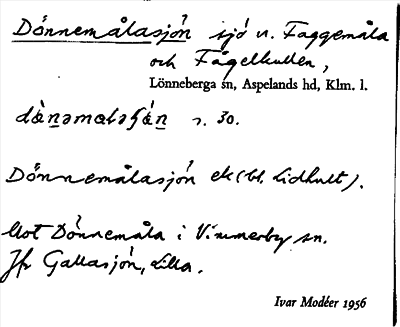 Dönnemålasjön sjö n. Faggemåla
och Fågelkullen,
Lönneberga sn, Aspelands hd, Klm. l.
s. 30.
Dönnemålasjön ek (bl. Lidhult).
Mot Dönnemåla i Vimmerby sn.
Jfr Gallasjön, Lilla.
Ivar Modéer 1956